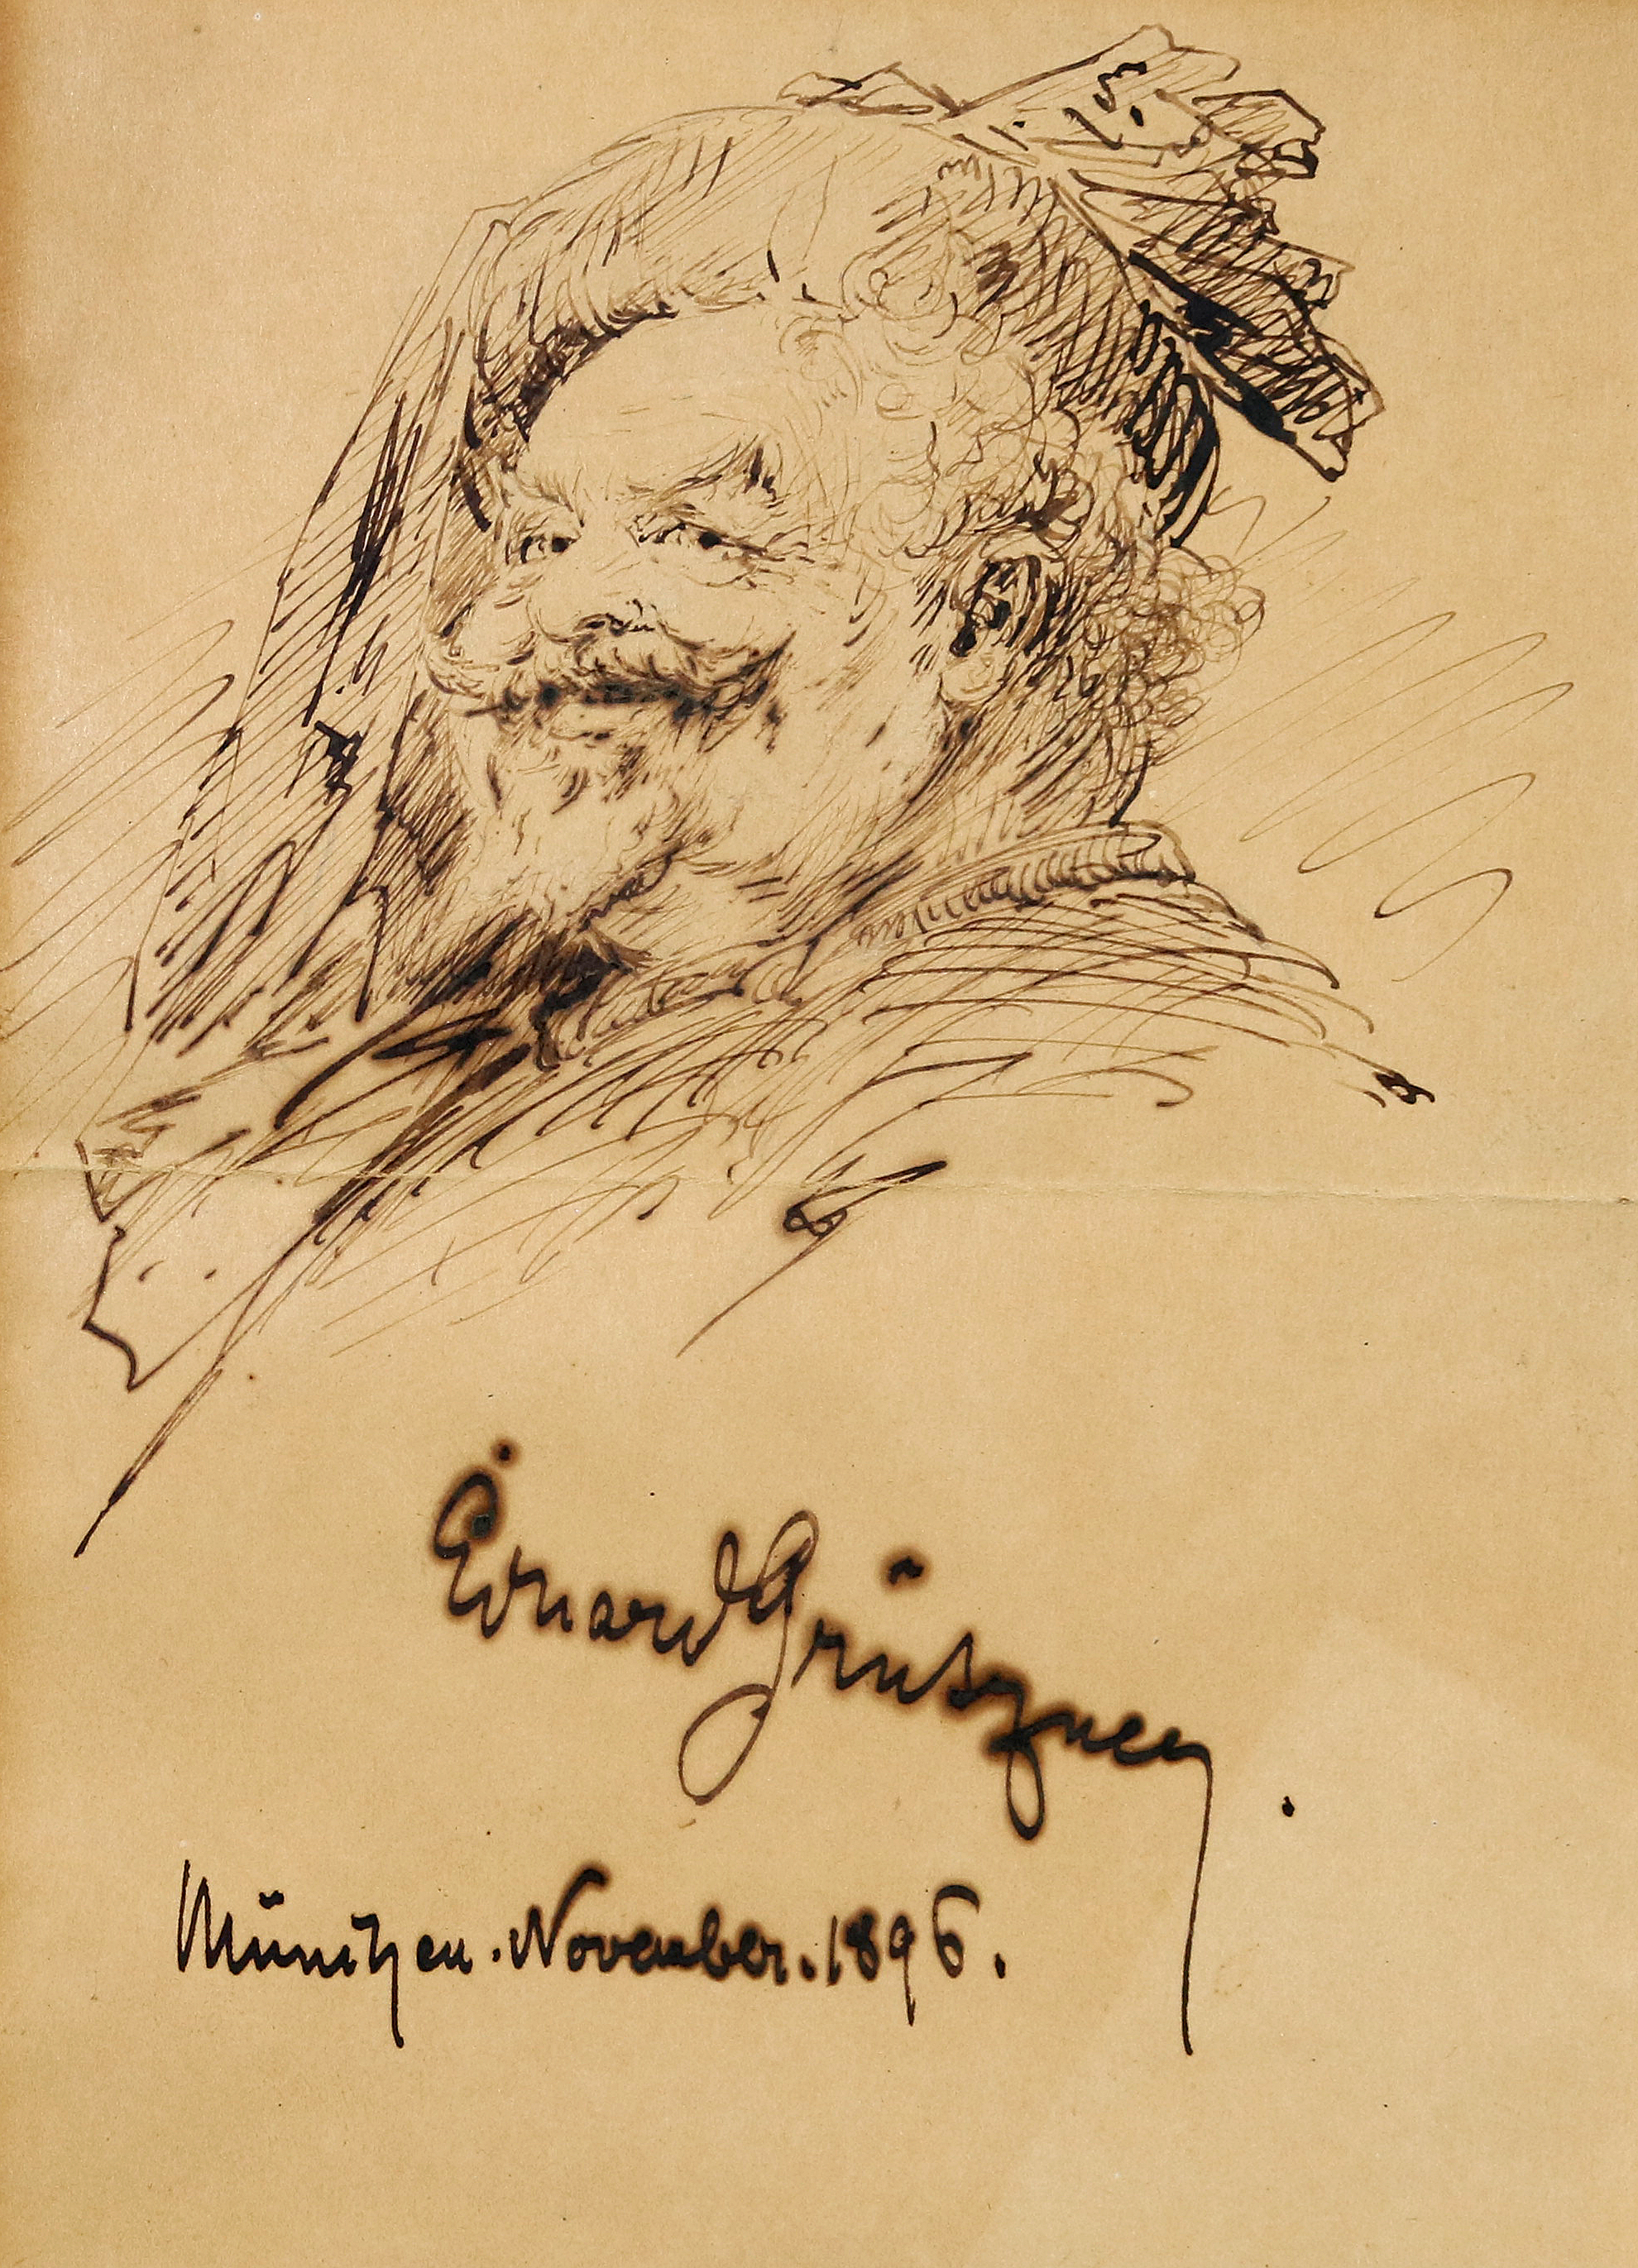 Eduard Grützner.
München. November. 1896.